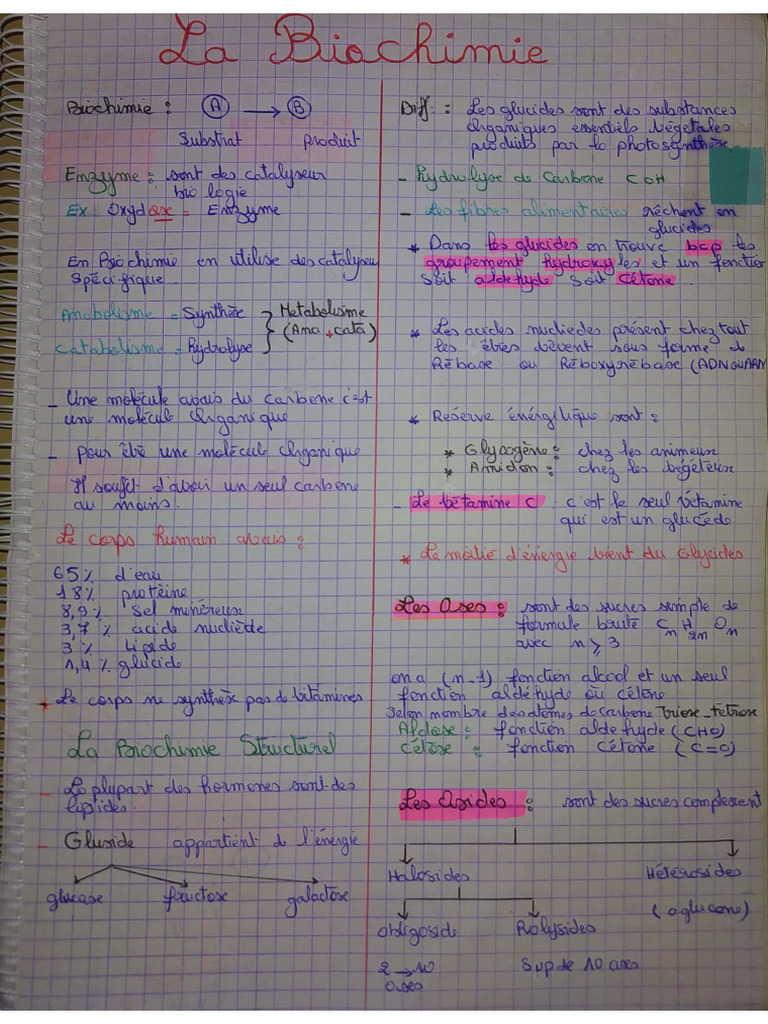 La Biochimie
Biochimie : A → B
Substrat produit
Enzyme : sont des catalyseur
bio logie
Ex : Oxydase = Enzyme
En Biochimie en utilise des catalyseu
Spécifique.
Anabolisme = Synthèse } Metabolisme
Catabolisme = Hydrolyse } (Ana + cata)
- Une molécule avais du carbone c'est
une molécule Organique
- pour être une molécul Organique
Il soufit d'avoir un seul carbone
au moins.
Le corps humain avais :
65% d'eau
18% protéine
8,9% sel minéreux
3,7% acide nucliède
3% Lipide
1,4% glucide
+ Le corps ne synthèse pas de bitamines
La Biochimie Structurel
- La plupart des hormones sont des
lipides.
- Gluside appartient de l'énergie
glucose fructose galactose
Diff. : Les glucides sont des substances
Organiques essentiels végetales
produits par la photosynthèse
- Hydrolyse de Carbone COH
- Les fibres alimentaires réchent en
glucides
* Dans les glucides on trouve bcp les
groupement hydroxyles et un fonction
soit aldehyde soit cétone.
* Les acides nucliedes présent chez tout
les êtres dévent sous forme de
Rébase ou Réboxyrébase (ADN ou ARN
* Reserve énérgilique sont :
* Glycogène : chez les animeux
* Amidon : chez les végéteux
- Le bétamine C : c'est le seul vétamine
qui est un glucédo
* La moitié d'énergie vient du Glycides
Les Oses : sont des sucres semple de
formule brute Cn H2n On
avec n ⩾ 3
on a (n-1) fonction alcool et un seul
fonction aldéhyde ou cétone
Selon nombre des atomes de carbone Triose_tetrose
Aldose : fonction aldehyde (CHO)
Cétose : fonction Cétone (C=O)
Les Osides : sont des sucres complexent
Halosides Hétérosides
(aglucone)
obligoside Polysides
2 → 10 Sup de 10 oses
oses